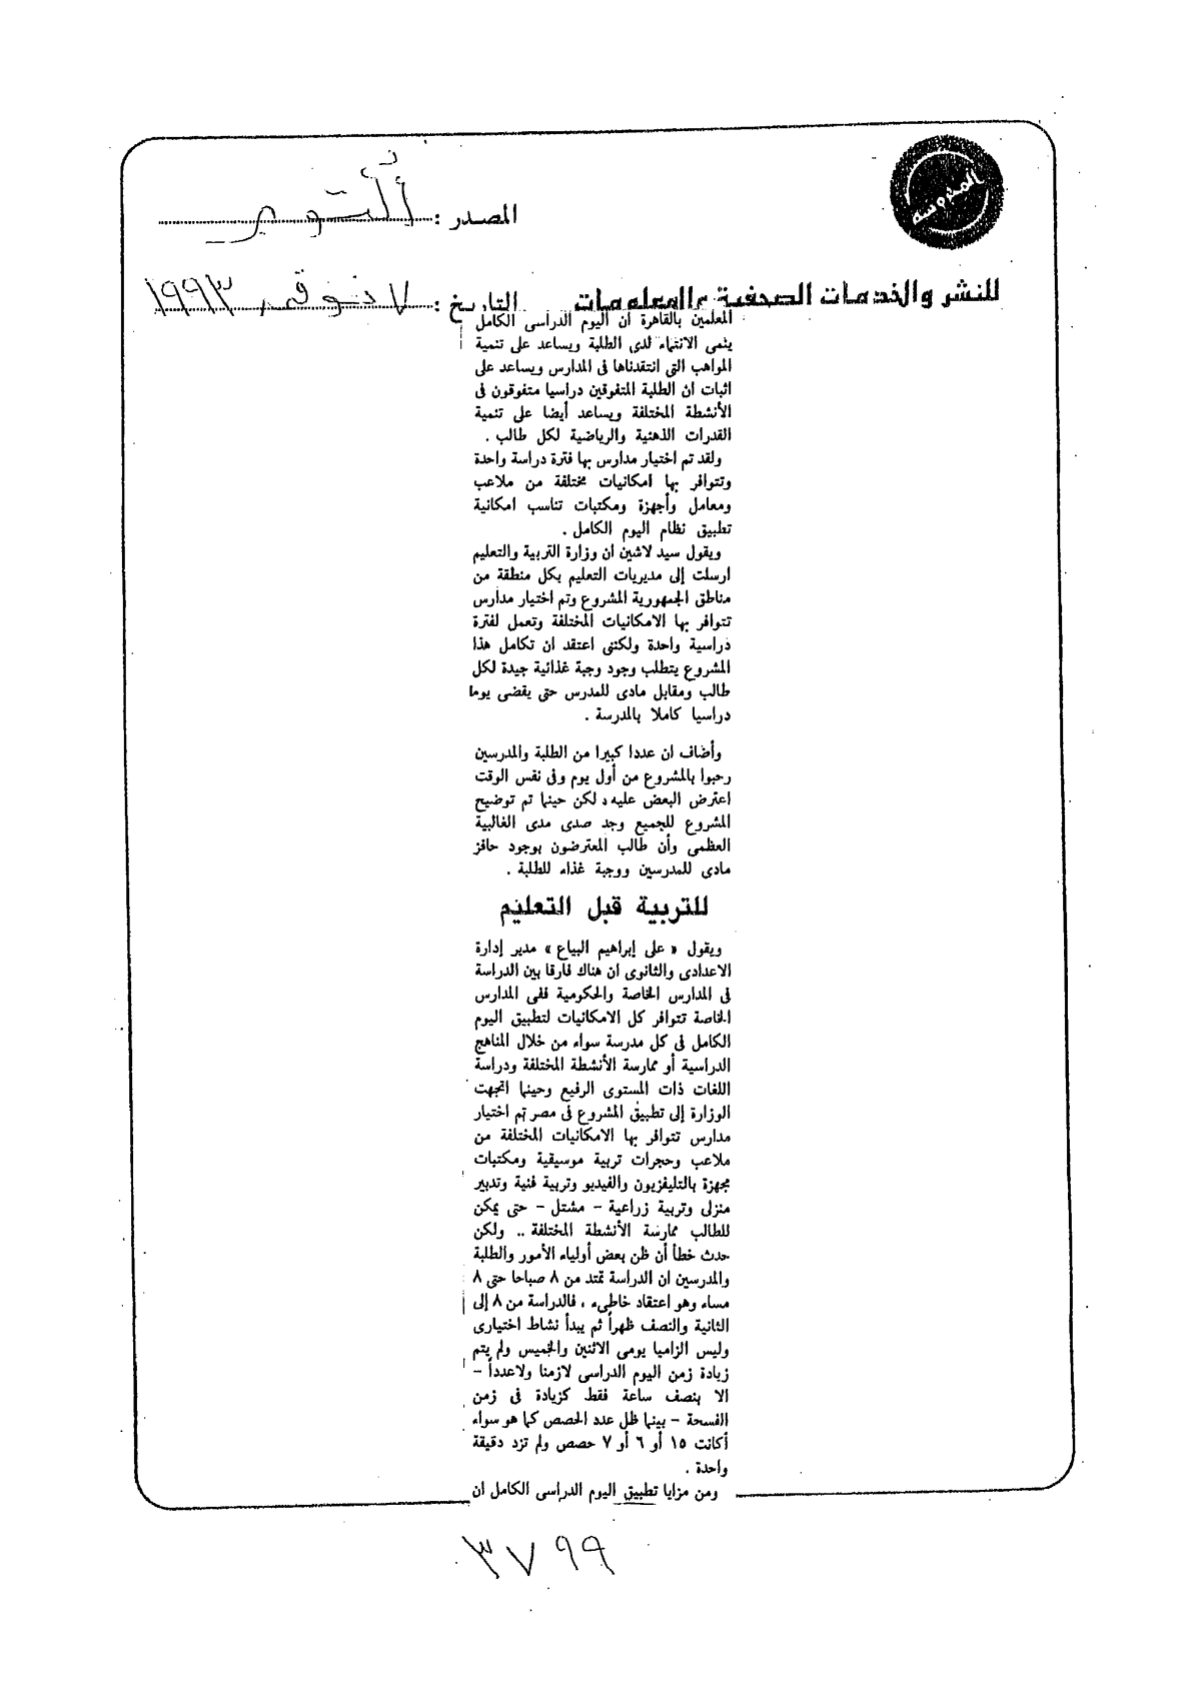 المحروسة
المصدر : أكتوبر
للنشر والخدمات الصحفية والمعلومات
التاريخ : ٧ نوفمبر ١٩٩٣
المعلمين بالقاهرة ان اليوم الدراسى الكامل
ينمى الانتماء لدى الطلبة ويساعد على تنمية
المواهب التى انتقدناها فى المدارس ويساعد على
اثبات ان الطلبة المتفوقين دراسيا متفوقون فى
الأنشطة المختلفة ويساعد أيضا على تنمية
القدرات الذهنية والرياضية لكل طالب .
ولقد تم اختيار مدارس بها فترة دراسة واحدة
وتتوافر بها امكانيات مختلفة من ملاعب
ومعامل وأجهزة ومكتبات تناسب امكانية
تطبيق نظام اليوم الكامل .
ويقول سيد لاشين ان وزارة التربية والتعليم
ارسلت إلى مديريات التعليم بكل منطقة من
مناطق الجمهورية المشروع وتم اختيار مدارس
تتوافر بها الامكانيات المختلفة وتعمل لفترة
دراسية واحدة ولكنى اعتقد ان تكامل هذا
المشروع يتطلب وجود وجبة غذائية جيدة لكل
طالب ومقابل مادى للمدرس حتى يقضى يوما
دراسيا كاملا بالمدرسة .
وأضاف ان عددا كبيرا من الطلبة والمدرسين
رحبوا بالمشروع من أول يوم وفى نفس الوقت
اعترض البعض عليه ، لكن حينما تم توضيح
المشروع للجميع وجد صدى مدى الغالبية
العظمى وأن طالب المعترضون بوجود حافز
مادى للمدرسين ووجبة غذاء للطلبة .
للتربية قبل التعليم
ويقول « على إبراهيم البياع » مدير إدارة
الاعدادى والثانوى ان هناك فارقا بين الدراسة
فى المدارس الخاصة والحكومية ففى المدارس
الخاصة تتوافر كل الامكانيات لتطبيق اليوم
الكامل فى كل مدرسة سواء من خلال المناهج
الدراسية أو ممارسة الأنشطة المختلفة ودراسة
اللغات ذات المستوى الرفيع وحينما اتجهت
الوزارة إلى تطبيق المشروع فى مصر تم اختيار
مدارس تتوافر بها الامكانيات المختلفة من
ملاعب وحجرات تربية موسيقية ومكتبات
مجهزة بالتليفزيون والفيديو وتربية فنية وتدبير
منزلى وتربية زراعية - مشتل - حتى يمكن
للطالب ممارسة الأنشطة المختلفة .. ولكن
حدث خطأ أن ظن بعض أولياء الأمور والطلبة
والمدرسين ان الدراسة تمتد من ٨ صباحا حتى ٨
مساء وهو اعتقاد خاطىء ، فالدراسة من ٨ إلى
الثانية والنصف ظهراً ثم يبدأ نشاط اختيارى
وليس الزاميا يومى الاثنين والخميس ولم يتم
زيادة زمن اليوم الدراسى لازمنا ولاعدداً -
الا بنصف ساعة فقط كزيادة فى زمن
الفسحة - بينما ظل عدد الحصص كما هو سواء
أكانت ١٥ أو ٦ أو ٧ حصص ولم تزد دقيقة
واحدة .
ومن مزايا تطبيق اليوم الدراسى الكامل ان
٣٧٩٩